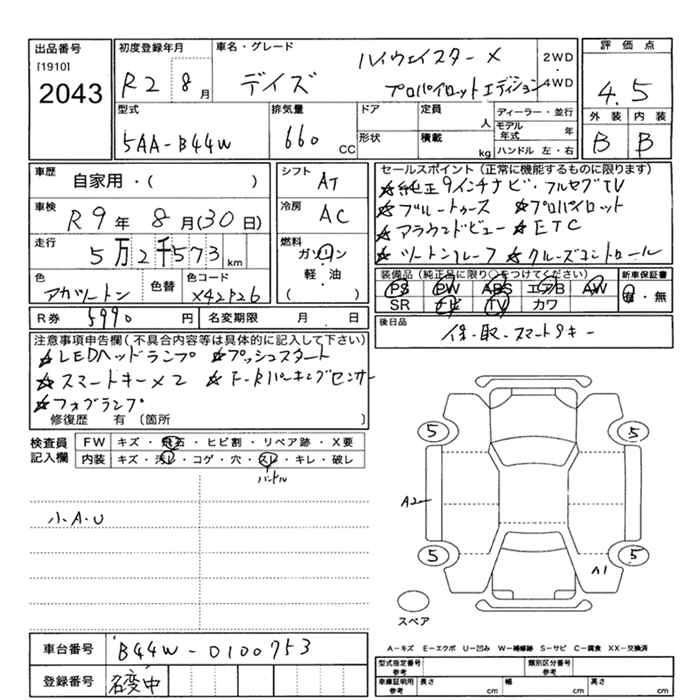 出品番号
[1910]
2043
初度登録年月
R2 8月
車名・グレード
デイズ
ハイウェイスター X
プロパイロットエディション
2WD
・
4WD
評価点
4.5
外装 内装
B B
型式
5AA-B44W
排気量
660 CC
ドア
形状
定員 人
積載 kg
ディーラー・並行
モデル年式 年
ハンドル 左・右
車歴
自家用・( )
シフト
AT
車検
R9年8月(30日)
冷房
AC
走行
5万2千573km
燃料
ガソリン
軽・油
( )
色
アカツートン
色替
色コード
X42P26
R券 5990円
名変期限 月 日
セールスポイント(正常に機能するものに限ります)
☆純正9インチナビ・フルセグTV
☆ブルートゥース ☆プロパイロット
☆アラウンドビュー ☆ETC
☆ツートンルーフ ☆クルーズコントロール
装備品(純正品に限り○をつけてください)
PS PW ABS エアB AW
SR ナビ TV カワ
新車保証書
有・無
後日品
保・取・スマートキー
注意事項申告欄(不具合内容等は具体的に記入して下さい)
☆LEDヘッドランプ ☆プッシュスタート
☆スマートキー×2 ☆F・Rパーキングセンサー
☆フォグランプ
修復歴 有〔箇所 〕
検査員記入欄
FW キズ・飛石・ヒビ割・リペア跡・X要
内装 キズ・汚レ・コゲ・穴・スレ・キレ・破レ
ハンドル
小A・U
5 5
A2
5 5
A1
スペア
車台番号 B44W-0100753
登録番号 名変中
A−キズ E−エクボ U−凹み W−補修跡 S−サビ C−腐食 XX−交換済
型式指定番号 参考
類別区分番号 参考
車庫証明用 参考
長さ cm 幅 cm 高さ cm